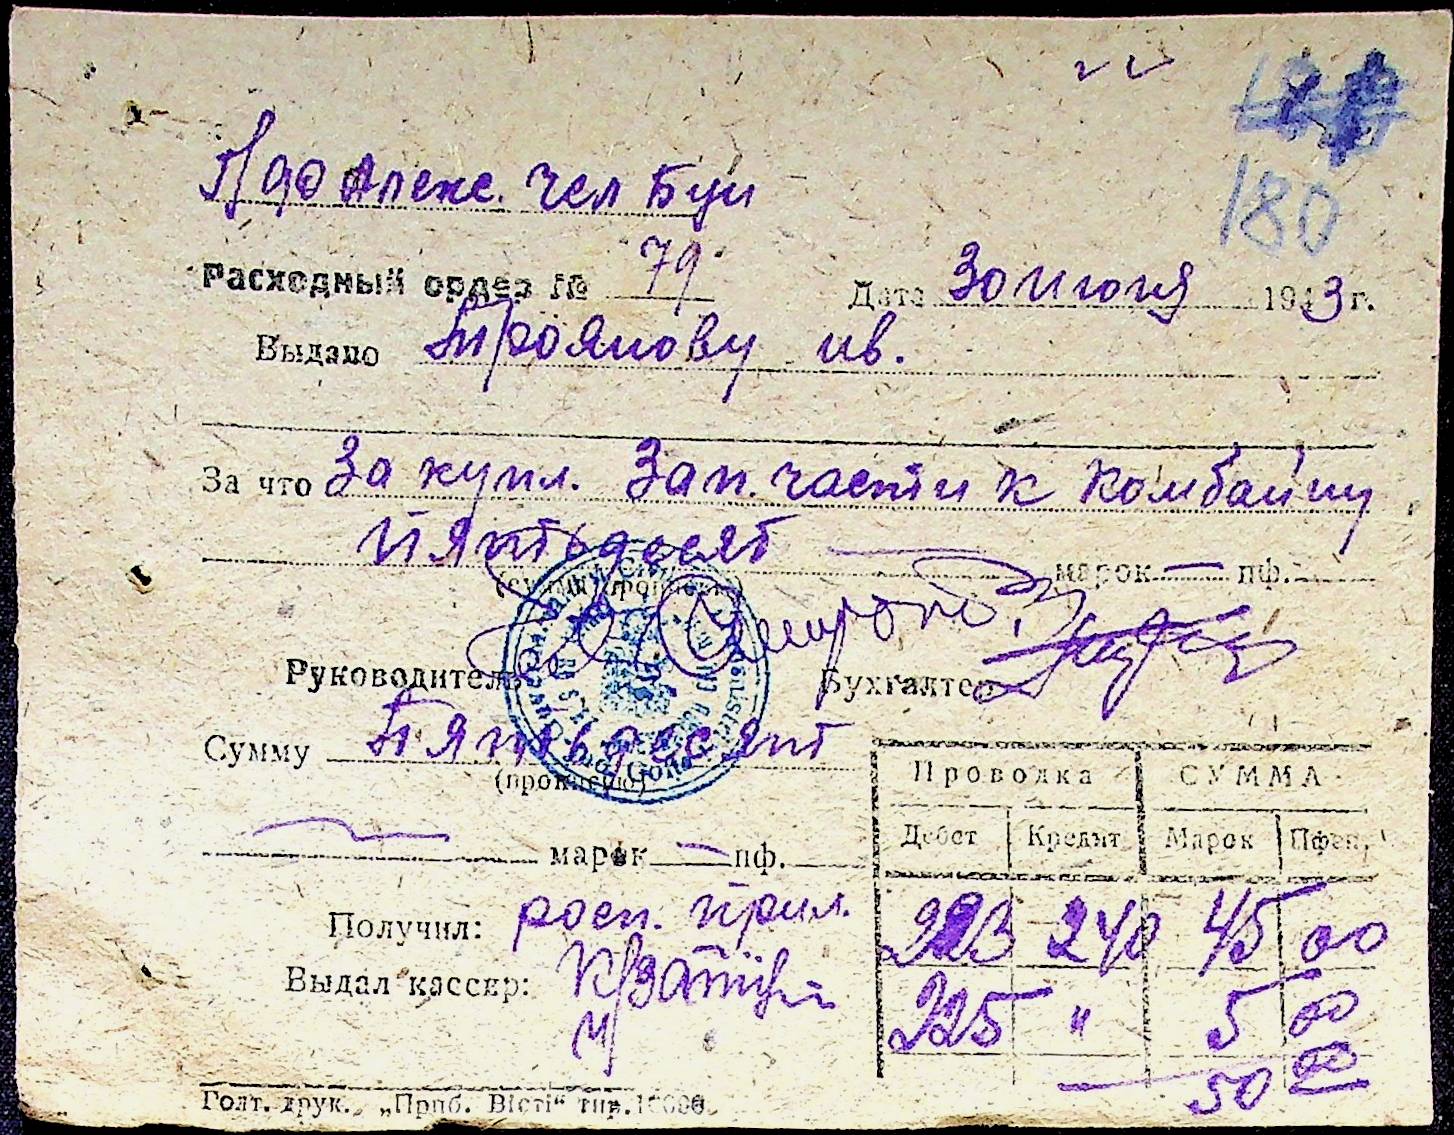 180
Расходный ордер № 79 Дата 30 июня 1943 г.
Выдано Троянову ив.
За что За купл. Зап. части к Комбайну
Пятьдесят марок — пф.
(сумма прописью)
Руководитель Бухгалтер
Сумму Пятьдесят
(прописью)
марок — пф.
Проводка СУММА
Дебет Кредит Марок Пфен.
Получил: росп. прил. 223 240 45 00
Выдал кассир: 225 " 5 00
50 00
Голт. друк. „Приб. Вісті“